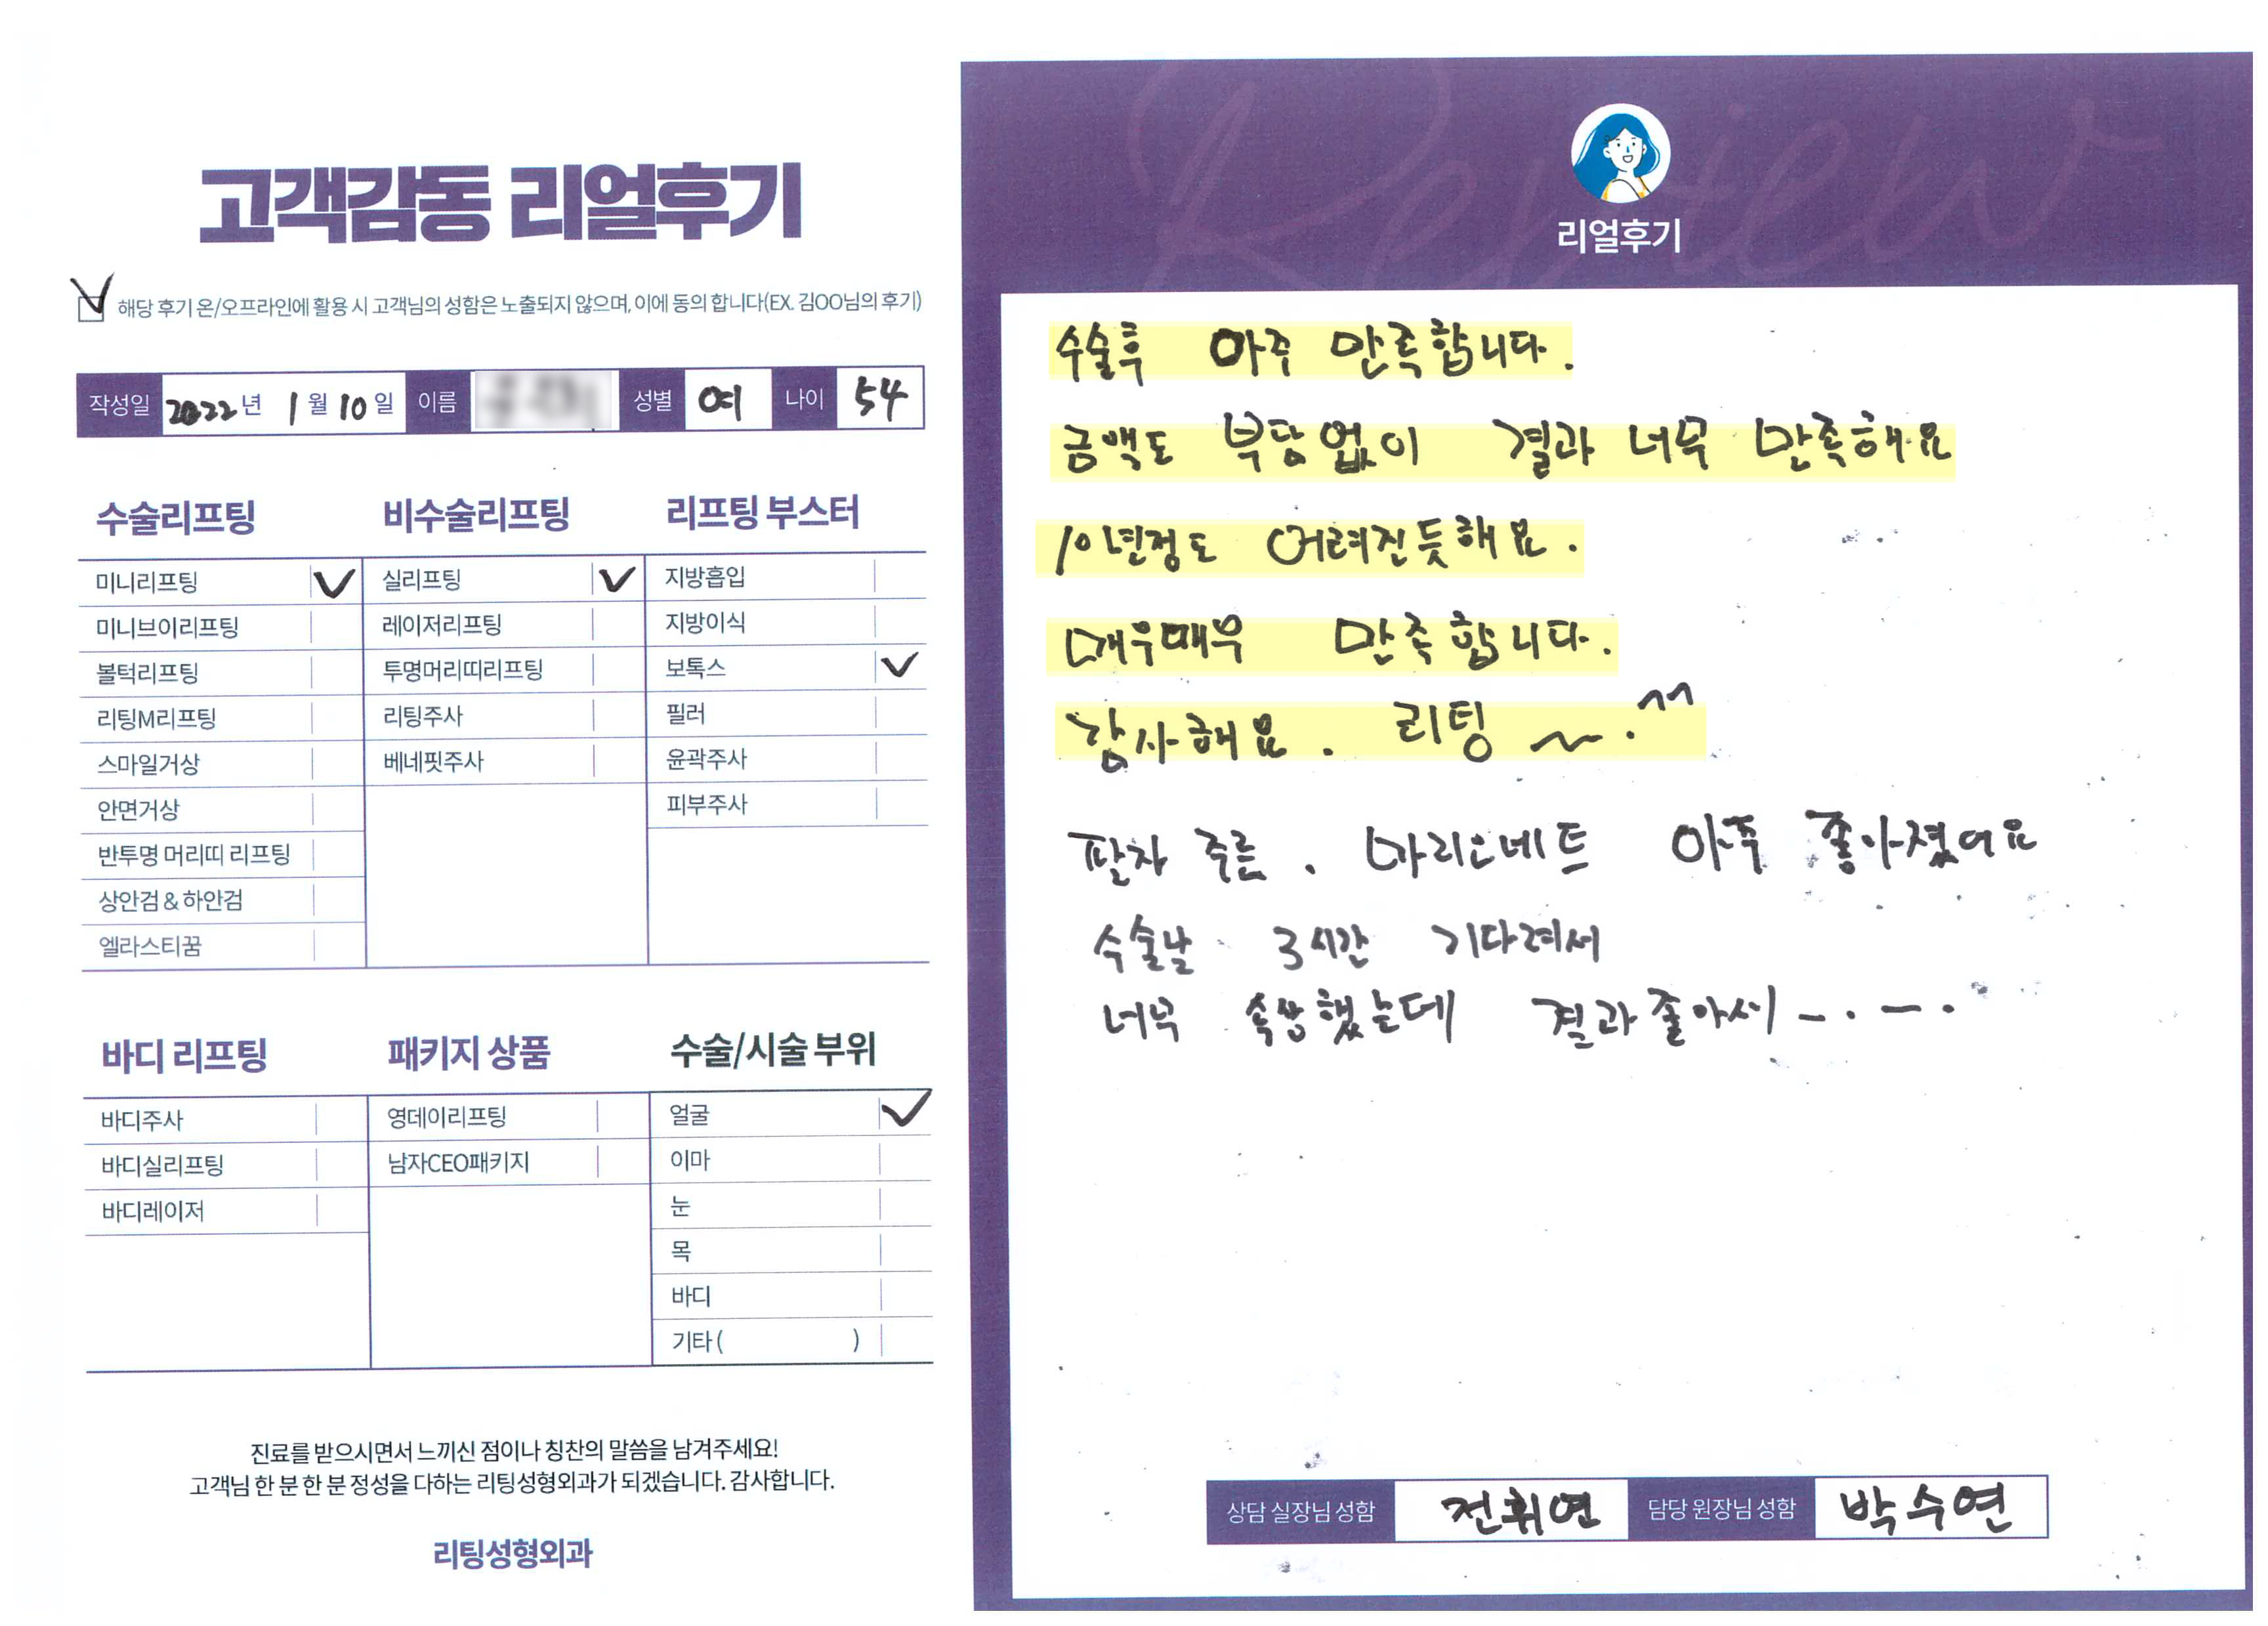 고객감동 리얼후기
해당 후기 온/오프라인에 활용 시 고객님의 성함은 노출되지 않으며, 이에 동의 합니다(EX. 김OO님의 후기)
작성일 2022년 1월 10일 이름 성별 여 나이 54
수술리프팅
미니리프팅
미니브이리프팅
볼턱리프팅
리팅M리프팅
스마일거상
안면거상
반투명 머리띠 리프팅
상안검 & 하안검
엘라스티꿈
비수술리프팅
실리프팅
레이저리프팅
투명머리띠리프팅
리팅주사
베네핏주사
리프팅 부스터
지방흡입
지방이식
보톡스
필러
윤곽주사
피부주사
바디 리프팅
바디주사
바디실리프팅
바디레이저
패키지 상품
영데이리프팅
남자CEO패키지
수술/시술 부위
얼굴
이마
눈
목
바디
기타 ( )
진료를 받으시면서 느끼신 점이나 칭찬의 말씀을 남겨주세요!
고객님 한 분 한 분 정성을 다하는 리팅성형외과가 되겠습니다. 감사합니다.
리팅성형외과
Review
리얼후기
수술후 아주 만족합니다.
금액도 부담없이 결과 너무 만족해요
10년정도 어려진듯해요.
매우매우 만족합니다.
감사해요. 리팅 ~.^^
팔자 주름. 마리오네트 아쭈 좋아졌어요
수술날 3시간 기다려서
너무 속상했는데 결과좋아서 -.-.
상담 실장님 성함 전휘연 담당 원장님 성함 박수연